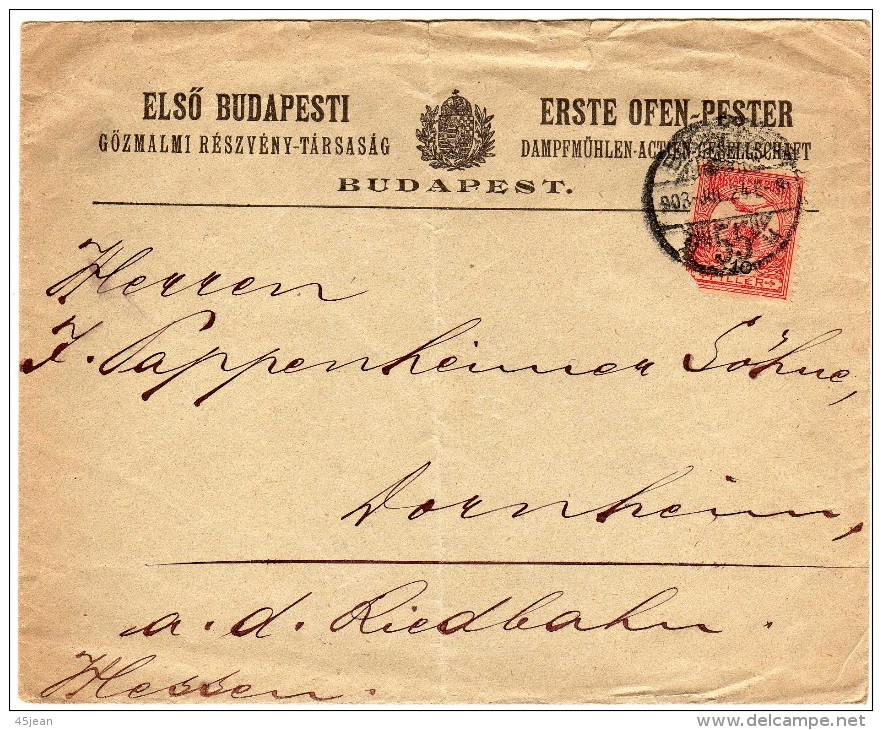 ELSŐ BUDAPESTI
GŐZMALMI RÉSZVÉNY-TÁRSASÁG
ERSTE OFEN-PESTER
DAMPFMŰHLEN-ACTIEN-GESELLSCHAFT
BUDAPEST.
903
10
FILLER
Herren
J. Pappenheimer Söhne,
Dornheim,
a. d. Riedbahn.
Hessen.
45jean
delcampe.net